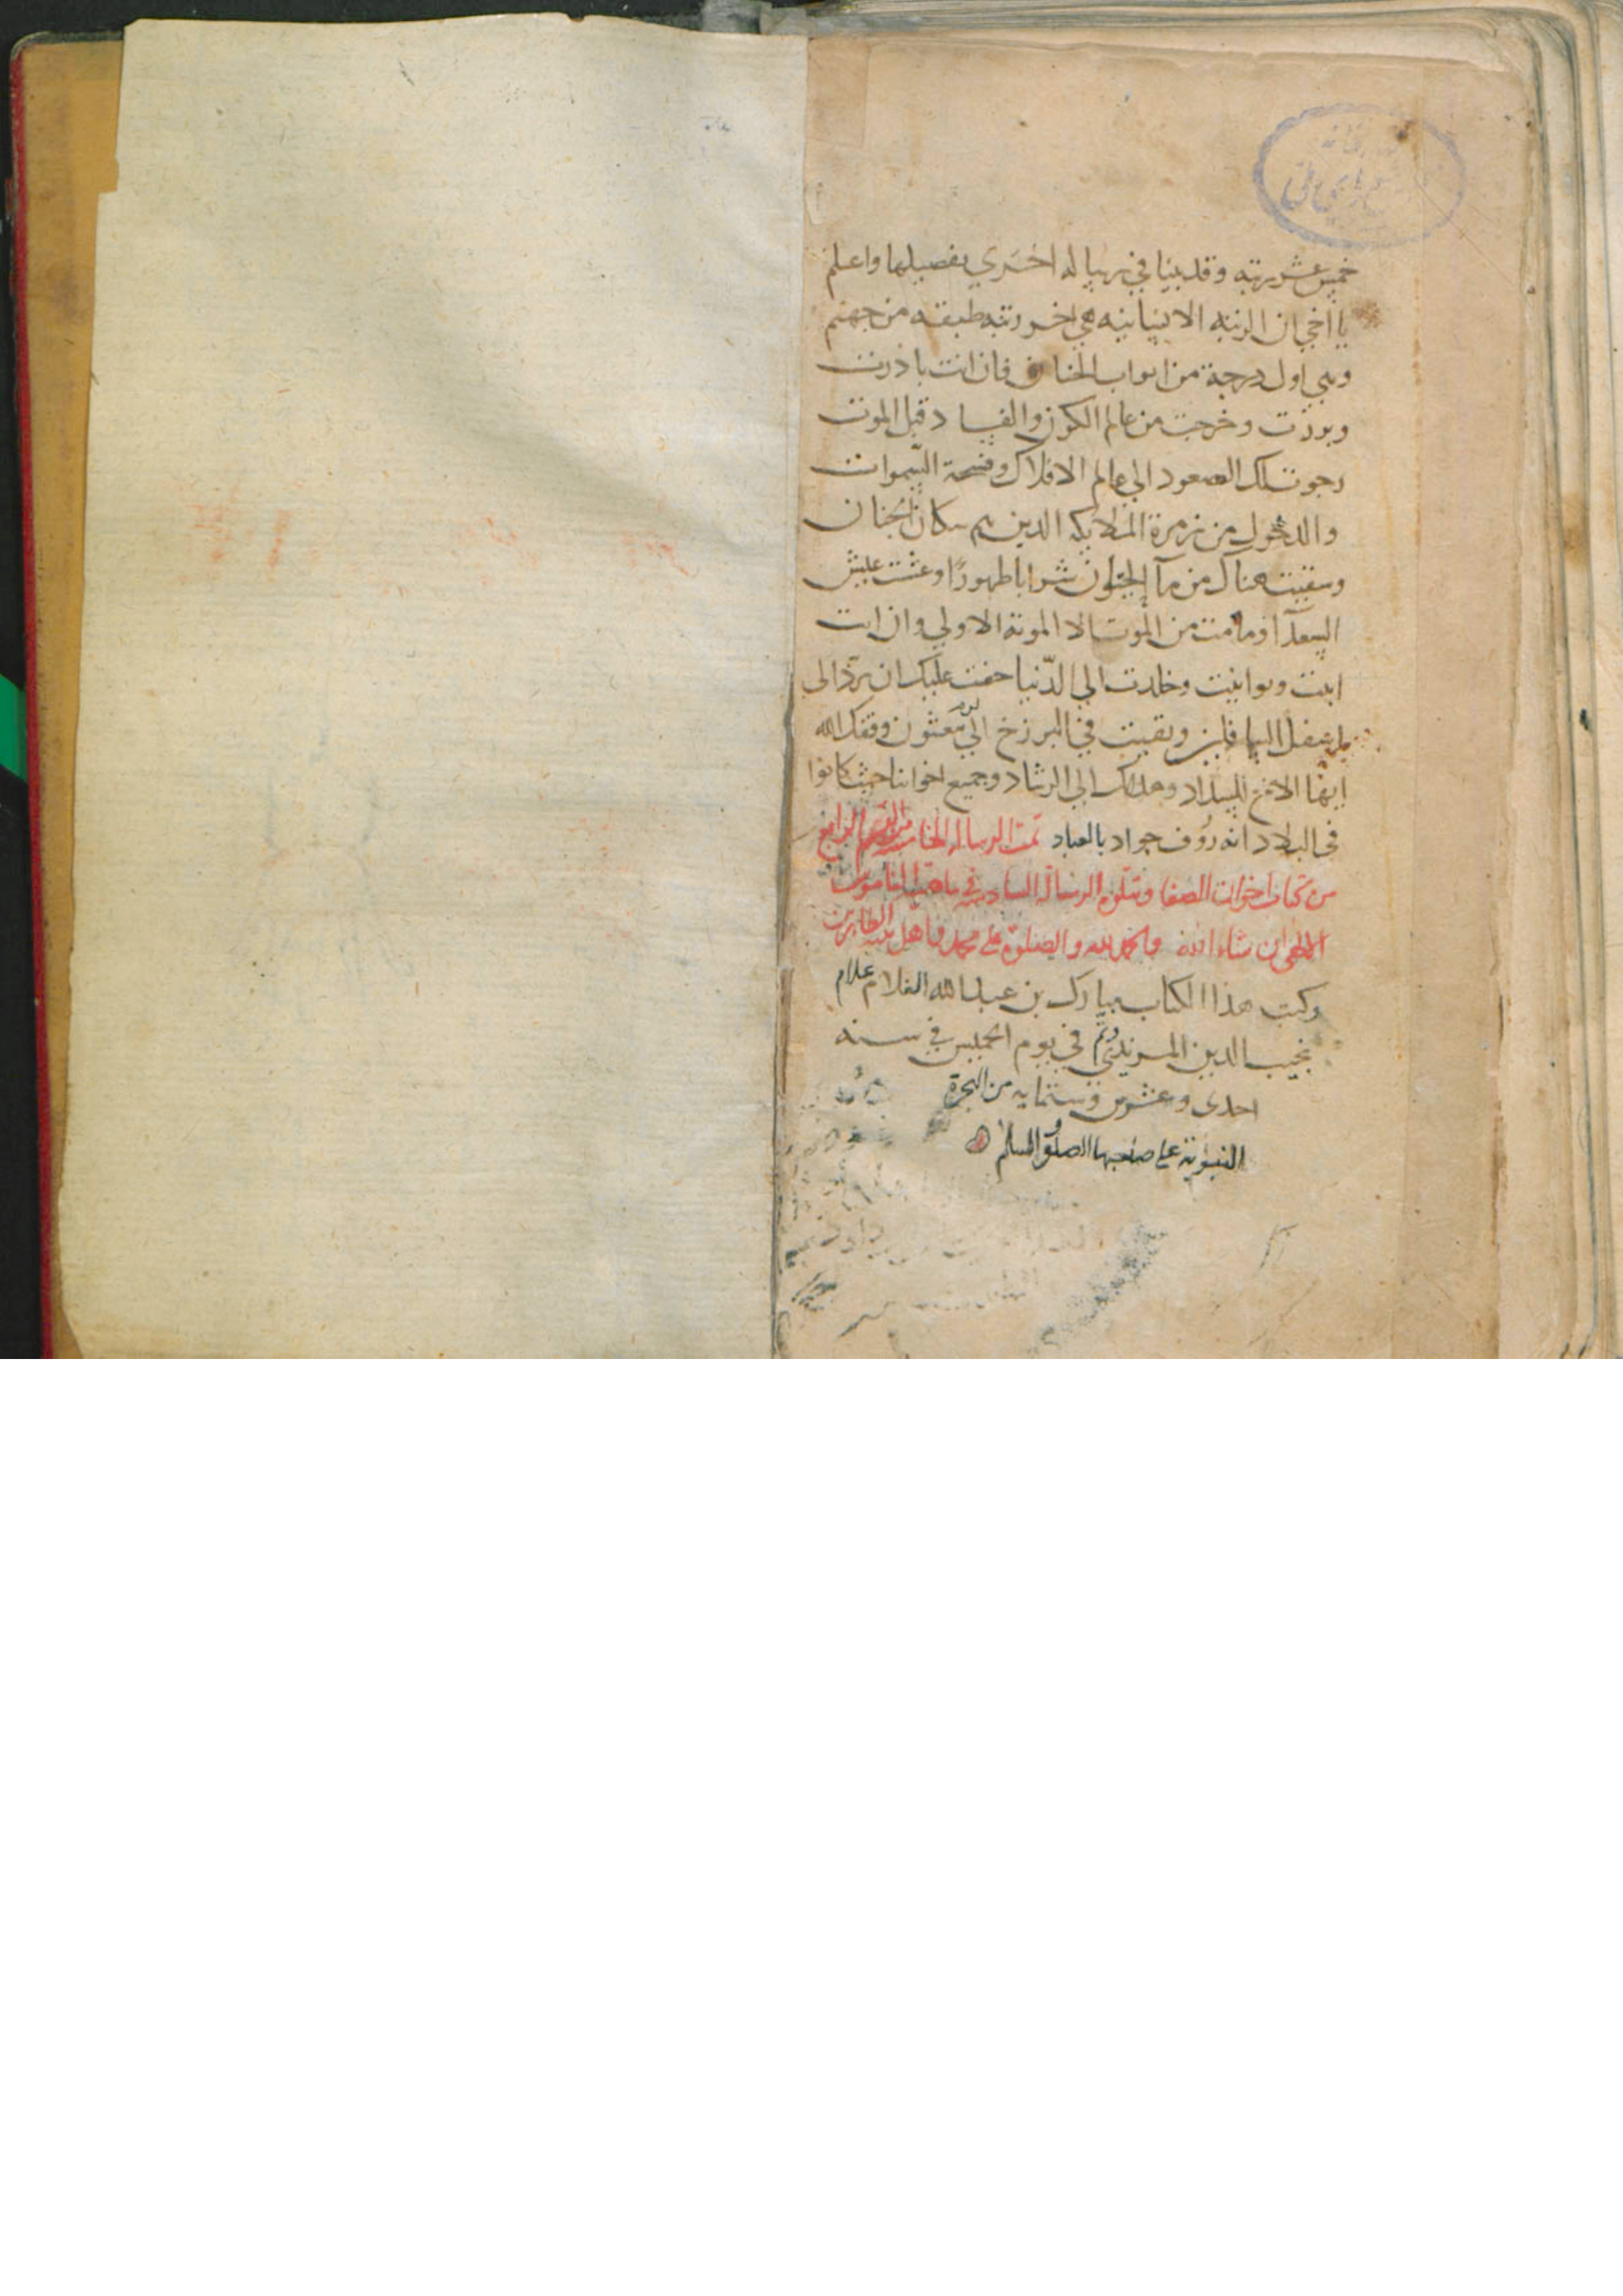 خمس عشر رتبه وقد بينا في رساله اخري بفصيلها واعلم
يا اخي ان الرتبه الانسانيه هي اخر رتبه طبقه من جهنم
وهي اول درجة من ابواب الجنان فان انت بادرت
وبرزت وخرجت من عالم الكون والفساد قبل الموت
رجوت لك الصعود الي عالم الافلاك وفسحة السموات
والدخول من زمرة الملايكه الدين هم سكان الجنان
وسقيت هناك من مآ الحيوان شرابا طهورًا وعشت عيش
السعدآ وما مت من الموت الا الموتة الاولي وان انت
ابيت وتوانيت وخلدت الي الدّنيا خفت عليك ان تردّ الى
اسفل السافلين وبقيت في البرزخ الي يوم يبعثون وفقك الله
ايها الاخ للسداد وهداك الي الرشاد وجميع اخواننا حيث كانوا
في البلاد انه رؤف جواد بالعباد تمت الرساله الخامسة من القسم الرابع
من كتاب اخوان الصفا وتتلوه الرساله السادسه في ماهية الناموس
الالهي ان شاء الله والحمد لله والصلوة على محمد واهل بيته الطاهرين
وكتب هذا الكتاب مبارك بن عبدالله الغلام غلام
نجيب الدين المرندي وتم في يوم الخميس في سنه
احدى وعشرين وستمايه من الهجرة
النبوية على صاحبها الصلوة والسلم